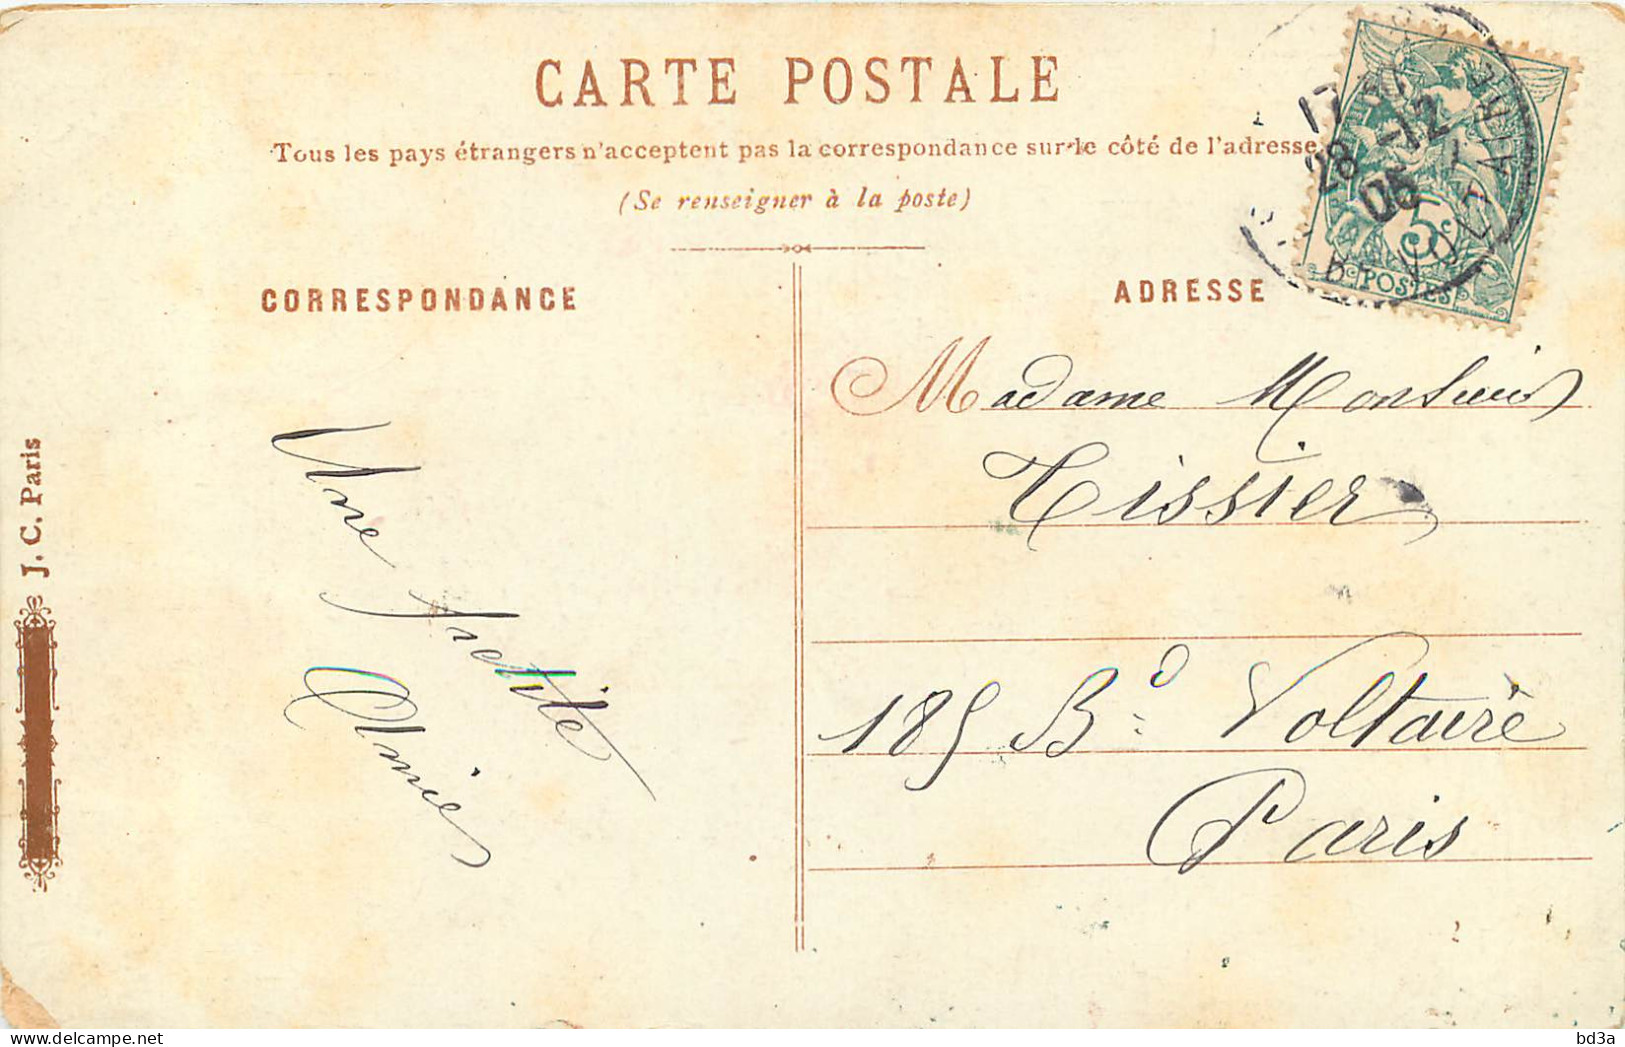 CARTE POSTALE
Tous les pays étrangers n'acceptent pas la correspondance sur le côté de l'adresse
(Se renseigner à la poste)
CORRESPONDANCE
Une petite
Amie
ADRESSE
Madame Monsieur
Tissier
185 Bd Voltaire
Paris
17
28 -12
06
VOLTAIRE
5c
POSTES
J. C. Paris
bd3a